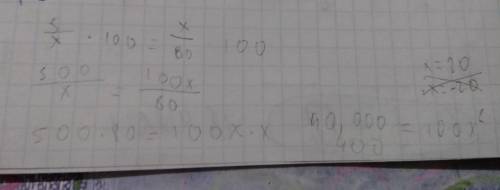 5/x · 100 = x/80 100
500/x = 100x/80
x=20
x=-20
500·80=100x·x 40,000 = 100x²
400